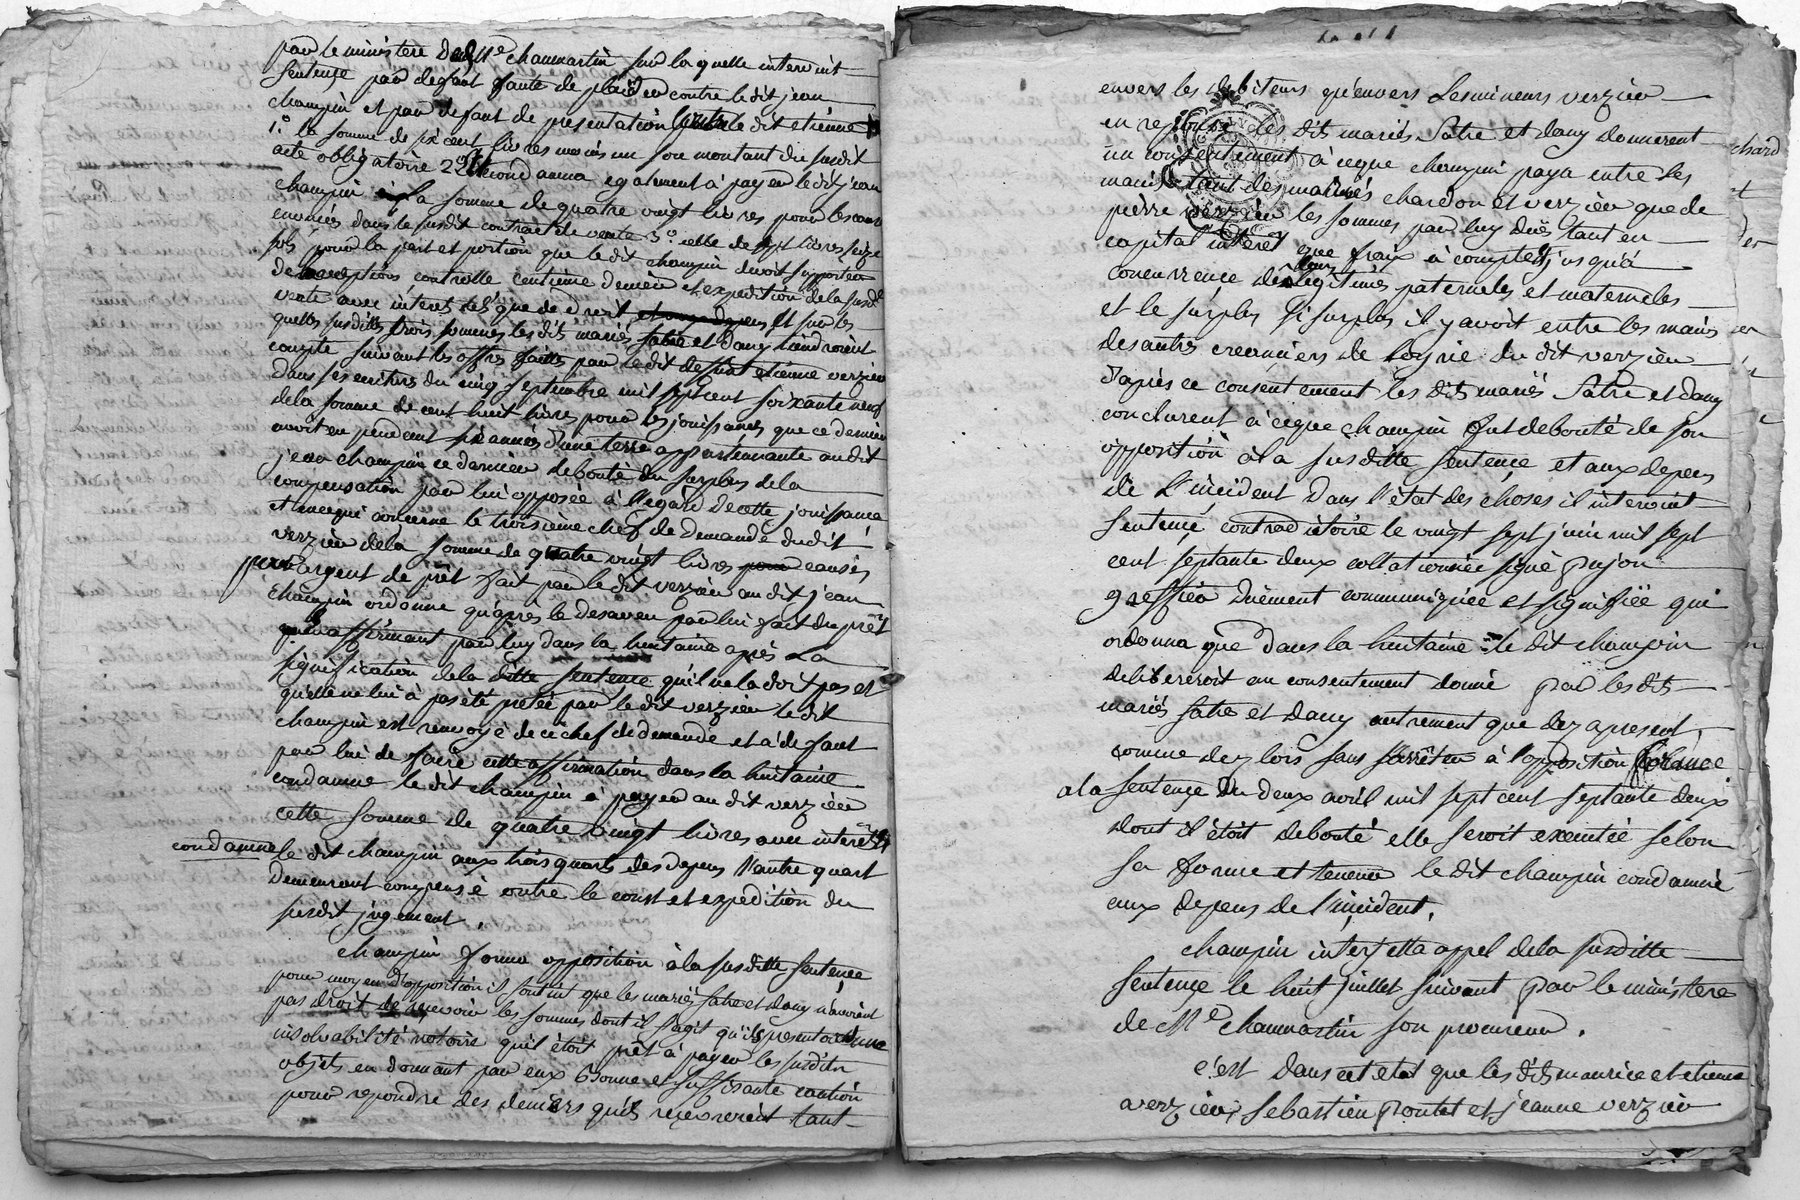 par le ministere de Me chaumartin sur la quelle intervint
sentence par deffaut faute de plaider contre le dit jean
champin et par defaut de presentation contre le dit etienne
1.° la somme de six cent livres moins un sou montant du susdit
acte obligatoire 2.° condamna egalement à payer le dit jean
champin la somme de quatre vingt livres pour les causes
enoncées dans le susdit contrat de vente 3.° celle de sept livres seize
sols pour la part et portion que le dit champin devoit supporter
de receptions controlle centieme denier et expedition de la susd.e
vente avec interet tels que de droit et sur les
quelles susdittes trois sommes les dits mariés satre et dany tiendroient
compte suivant les offres faittes par le dit defunt etienne verzieu
dans ses ecritures du cinq septembre mil sept cent soixante neuf
de la somme de cent huit livres pour les jouissances que ce dernier
avoit eu pendent six années d'une terre appartennante au dit
jean champin ce dernier debouté du surplus de la
compensation par lui opposée à l'egard de cette jouissance
et en ce qui concerne le troisieme chef de demande du dit
verzieu de la somme de quatre vingt livres pour causés
pour argent de prêt fait par le dit verzieu au dit jean
champin ordonne qu'après le desaveu par lui fait du prêt
qu'en affirmant par luy dans la huitaine après la
signification de la ditte sentence qu'il ne la doit pas et
qu'elle ne lui à pas été pretée par le dit verzieu le dit
champin est renvoyé de ce chef de demande et à defaut
par lui de faire cette affirmation dans la huitaine
condamne le dit champin à payer au dit verzieu
cette somme de quatre vingt livres avec interets
condamne le dit champin aux trois quarts des depens l'autre quart
demeurant compensé outre le coust et expedition du
susdit jugement.
champin forma opposition à la susditte sentence
pour moyen d'opposition il soutint que les mariés satre et dany n'avoient
pas droit de recevoir les sommes dont il s'agit qu'ils presentoient une
insolvabilité notoire quil étoit prêt à payer les susdits
objets en donnant par eux bonne et suffisante caution
pour repondre des deniers quils recevroient tant
envers les debiteurs qu'envers les mineurs verzieu
en reponse les dits mariés satre et dany donnerent
un consentement à ceque champin paya entre les
mains tant des mariés chardon et verzieu que de
pierre verzieu les sommes par luy dues tant en
capital interet que frais à compte et jusqu'à
concurrence des legitimes paternelles et maternelles
et le surplus si surplus il y avoit entre les mains
des autres creanciers de l'oyrie du dit verzieu
d'après ce consentement les dits mariés satre et dany
conclurent à ceque champin fut debouté de son
opposition à la susditte sentence et aux depens
de l'incident dans l'état des choses il intervint
sentence contradictoire le vingt sept juin mil sept
cent septante deux collationnée signé pujon
greffier duement communiquée et signifiée qui
ordonna que dans la huitaine le dit champin
delibereroit au consentement donné par les dits
mariés satre et dany autrement que dez apresent,
comme dez lors sans s'arrêter à l'opposition formée
a la sentence du deux avril mil sept cent septante deux
dont il étoit debouté elle seroit executée selon
sa forme et teneur le dit champin condamné
aux depens de l'incident.
champin interjetta appel de la susditte
sentence le huit juillet suivant par le ministere
de Me chaumartin son procureur.
c'est dans cet etat que les dits maurice et etienne
verzieu, sebastien pontet et jeanne verzieu